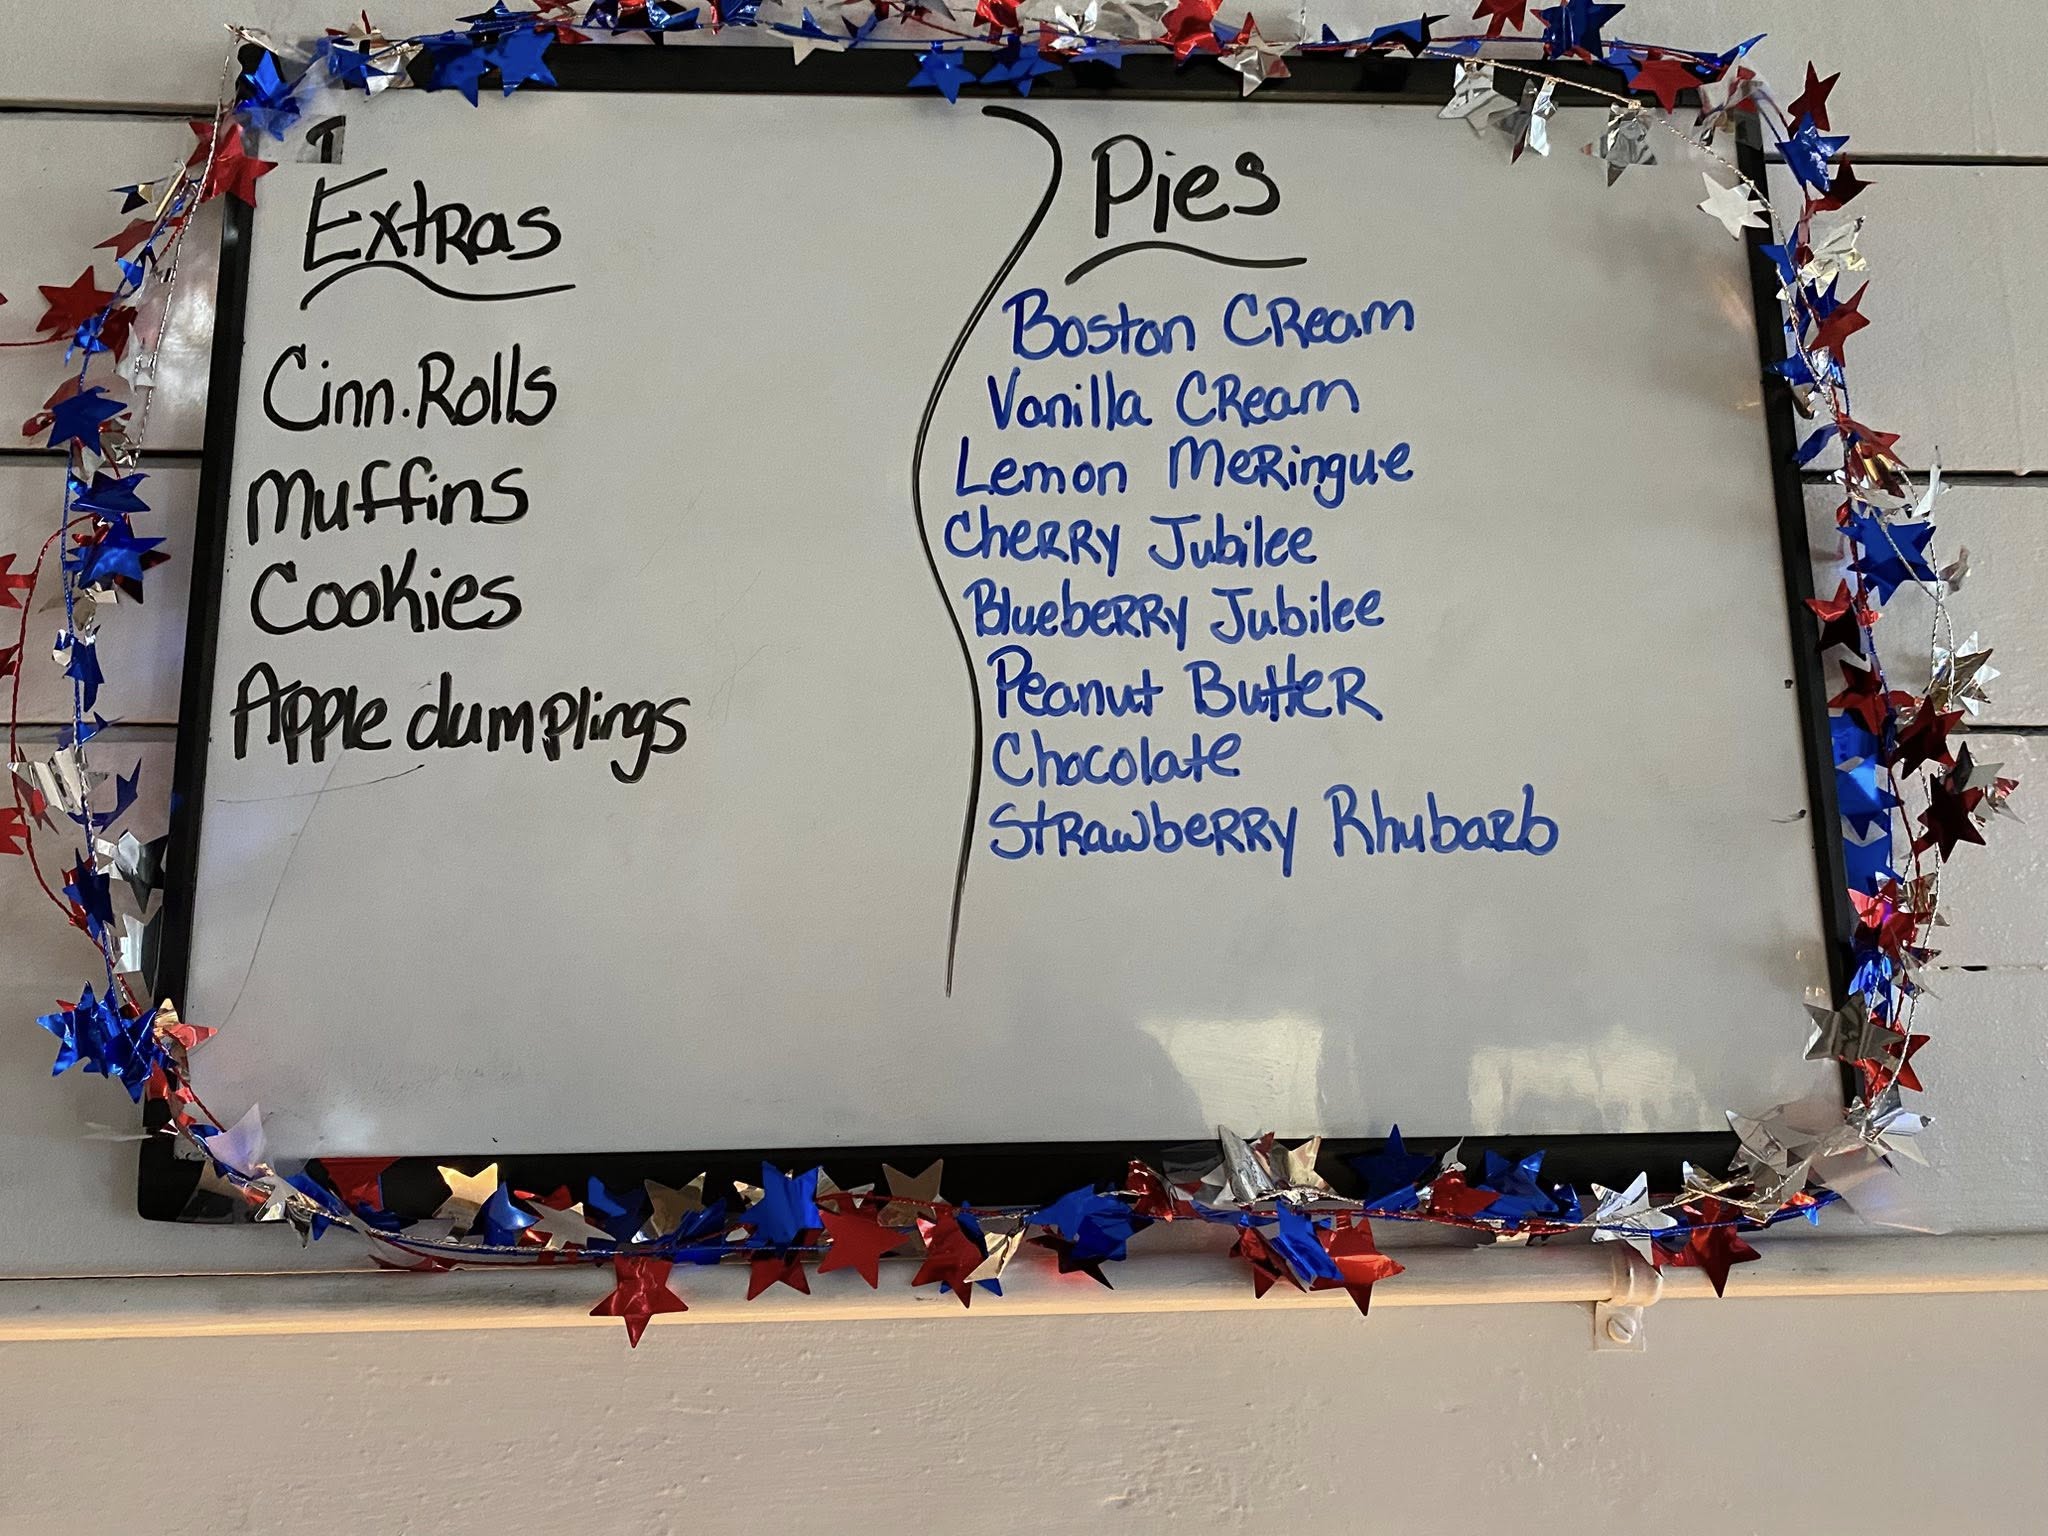 Extras
Cinn. Rolls
Muffins
Cookies
Apple dumplings
Pies
Boston Cream
Vanilla Cream
Lemon Meringue
Cherry Jubilee
Blueberry Jubilee
Peanut Butter
Chocolate
Strawberry Rhubarb